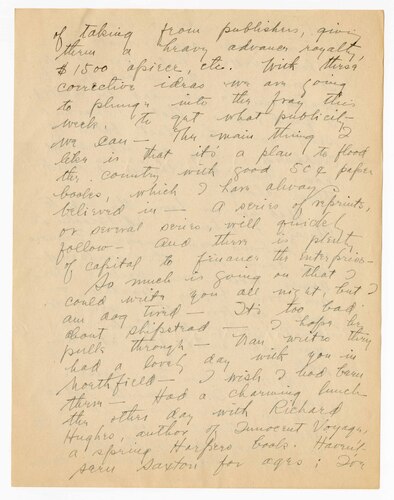 of taking from publishers, giving
them a heavy advance royalty,
$1500 apiece, etc. With these
corrective ideas we are going
to plunge into the fray this
week, to get what publicity
we can — The main thing I
like is that it's a plan to flood
the country with good 50¢ paper
books, which I have always
believed in — A series of reprints,
or several series, will quickly
follow — And there is plenty
of capital to finance the enterprise —
So much is going on that I
could write you all night, but I
am dog tired — It's too bad
about Shipstead — I hope he
pulls through — Fran writes they
had a lovely day with you in
Northfield — I wish I had been
there — Had a charming lunch
the other day with Richard
Hughes, author of Innocent Voyage,
a spring Harpers book. Haven't
seen Saxton for ages; Joe